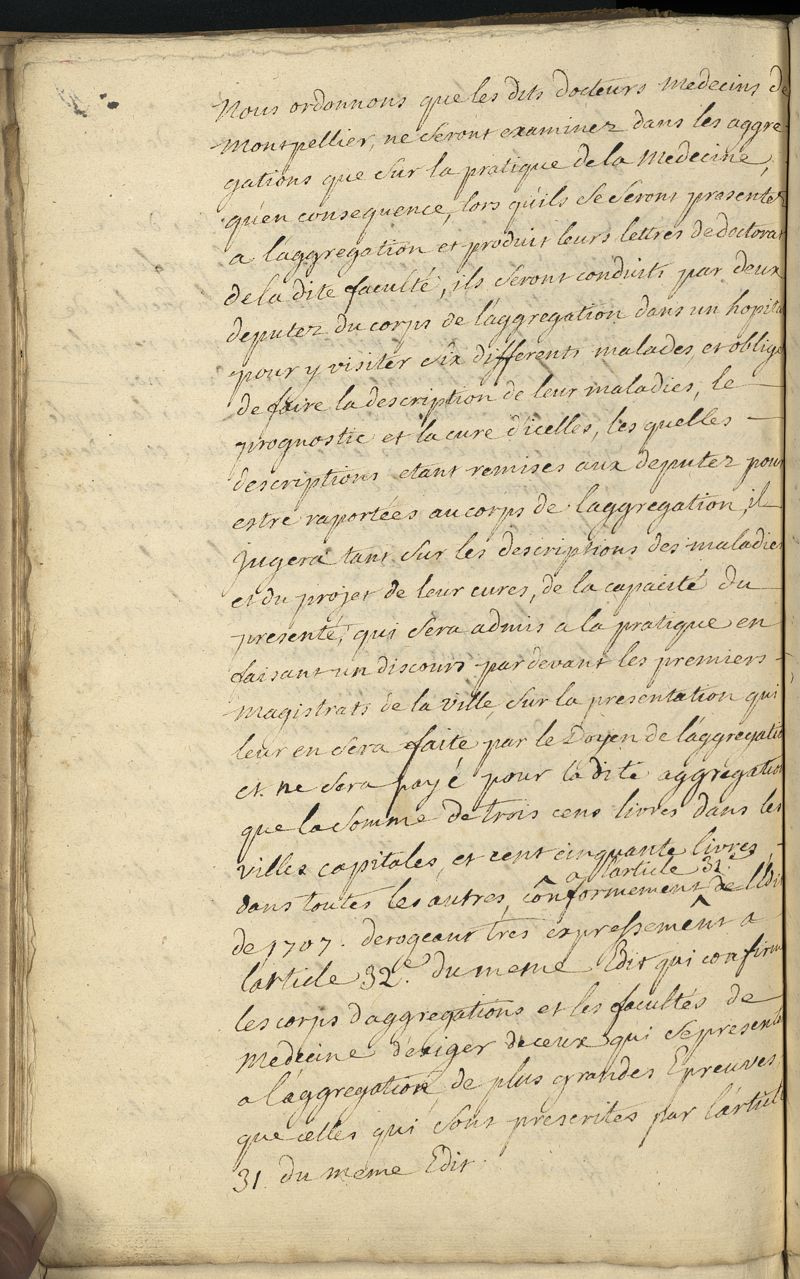 Nous ordonnons que les dits docteurs medecins de
montpellier, ne seront examinez dans les aggre-
gations que sur la pratique de la medecine,
qu'en consequence, lors qu'ils se seront presentez
a l'aggregation et produit leurs lettres de doctorat
de la dite faculté, ils seront conduits par deux
deputez du corps de l'aggregation dans un hopital
pour y visiter six differents malades, et obligé
de faire la description de leur maladies, le
prognostic et la cure d'icelles, les quelles
descriptions etant remises aux deputez pour
estre raportées au corps de l'aggregation, il
jugera tant sur les descriptions des maladies
et du projet de leur cures, de la capacité du
presenté, qui sera admis a la pratique en
faisant un discours par devant les premiers
magistrats de la ville, sur la presentation qui
leur en sera faite par le Doyen de l'aggregation
et ne sera payé pour la dite aggregation
que la somme de trois cens livres dans les
villes capitales, et cent cinquante livres
dans toutes les autres, conformement a l'article 31e de l'Edit
de 1707. derogeant tres expressement a
l'article 32e. du meme Edit qui confirme
les corps d'aggregations et les facultés de
medecine d'exiger de ceux qui se presente
a l'aggregation, de plus grandes Epreuves
que celles qui sont prescrites par l'article
31 du meme Edit.